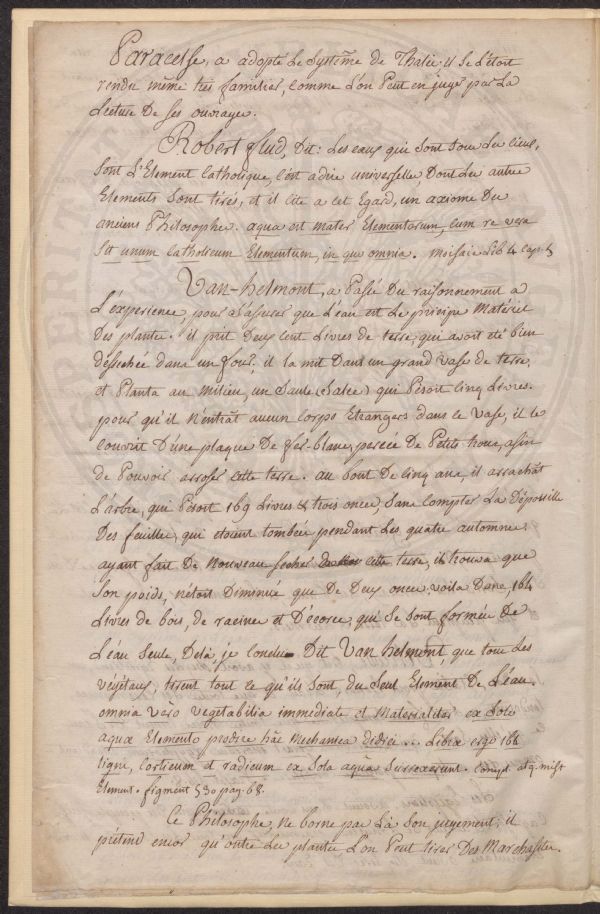 Paracelse, a adopté Le systême de Thalès il se l'étoit
rendu même très familier, comme l'on Peut en juger par La
Lecture De ses ouvrages.
Robert flud, Dit: Les eaux qui sont sous les cieux,
sont L'Element Catholique, c'est a dire universelle, Dont Les autres
Elements sont tirés, et il cite a cet Egard, un axiome Du
anciens Philosophe. aqua est mater Elementorum, cum re vera
sit unum Catholicum Elementum, in quo omnia. Moisaic Lib 4 cap 5
Van-helmont, a Passé Du raisonnement a
L'experience, pour s'assurer que L'eau est Le principe Matériel
Des plantes. il prit Deux Cent Livres de terre, qui avoit eté bien
desséchée dans un four, il la mit Dans un grand vase de terre,
et Planta au Milieu, un Saule (Salix) qui Pesoit cinq Livres.
pour qu'il N'entrât aucun corps Etrangers dans le Vase, il le
couvrit D'une plaque De fer-blanc, percée De Petits trous, afin
de Pouvoir arroser cette terre. au bout De cinq ans, il arrachât
L'arbre, qui Pesoit 169 Livres & trois onces, sans compter La Dépouille
Des feuilles, qui etoient tombées pendant Les quatre automnes
ayant fait De Nouveau secher cette terre, il trouva que
son poids, n'étoit Diminué que De Deux onces. voila Donc, 164
Livres de bois, de racines et D'écorce, qui se sont formées De
L'eau Seule, Delà, je conclus Dit Van helmont, que tous Les
végétaux, tirent tout ce qu'ils sont, du seul Element De L'eau.
omnia vero vegetabilia immediate et Materialiter ex Solo
aquæ Elemento prodire hâc Mechanica didici ... Libræ ergo 164
ligni, corticum et radicum ex Sola aqua Surrexerunt. Compl. atq. mist.
Element. figment § 30 pag. 68.
Ce Philosophe, Ne borne pas Là son jugement, il
prétend encor qu'outre Les plantes L'on Peut tirer Des